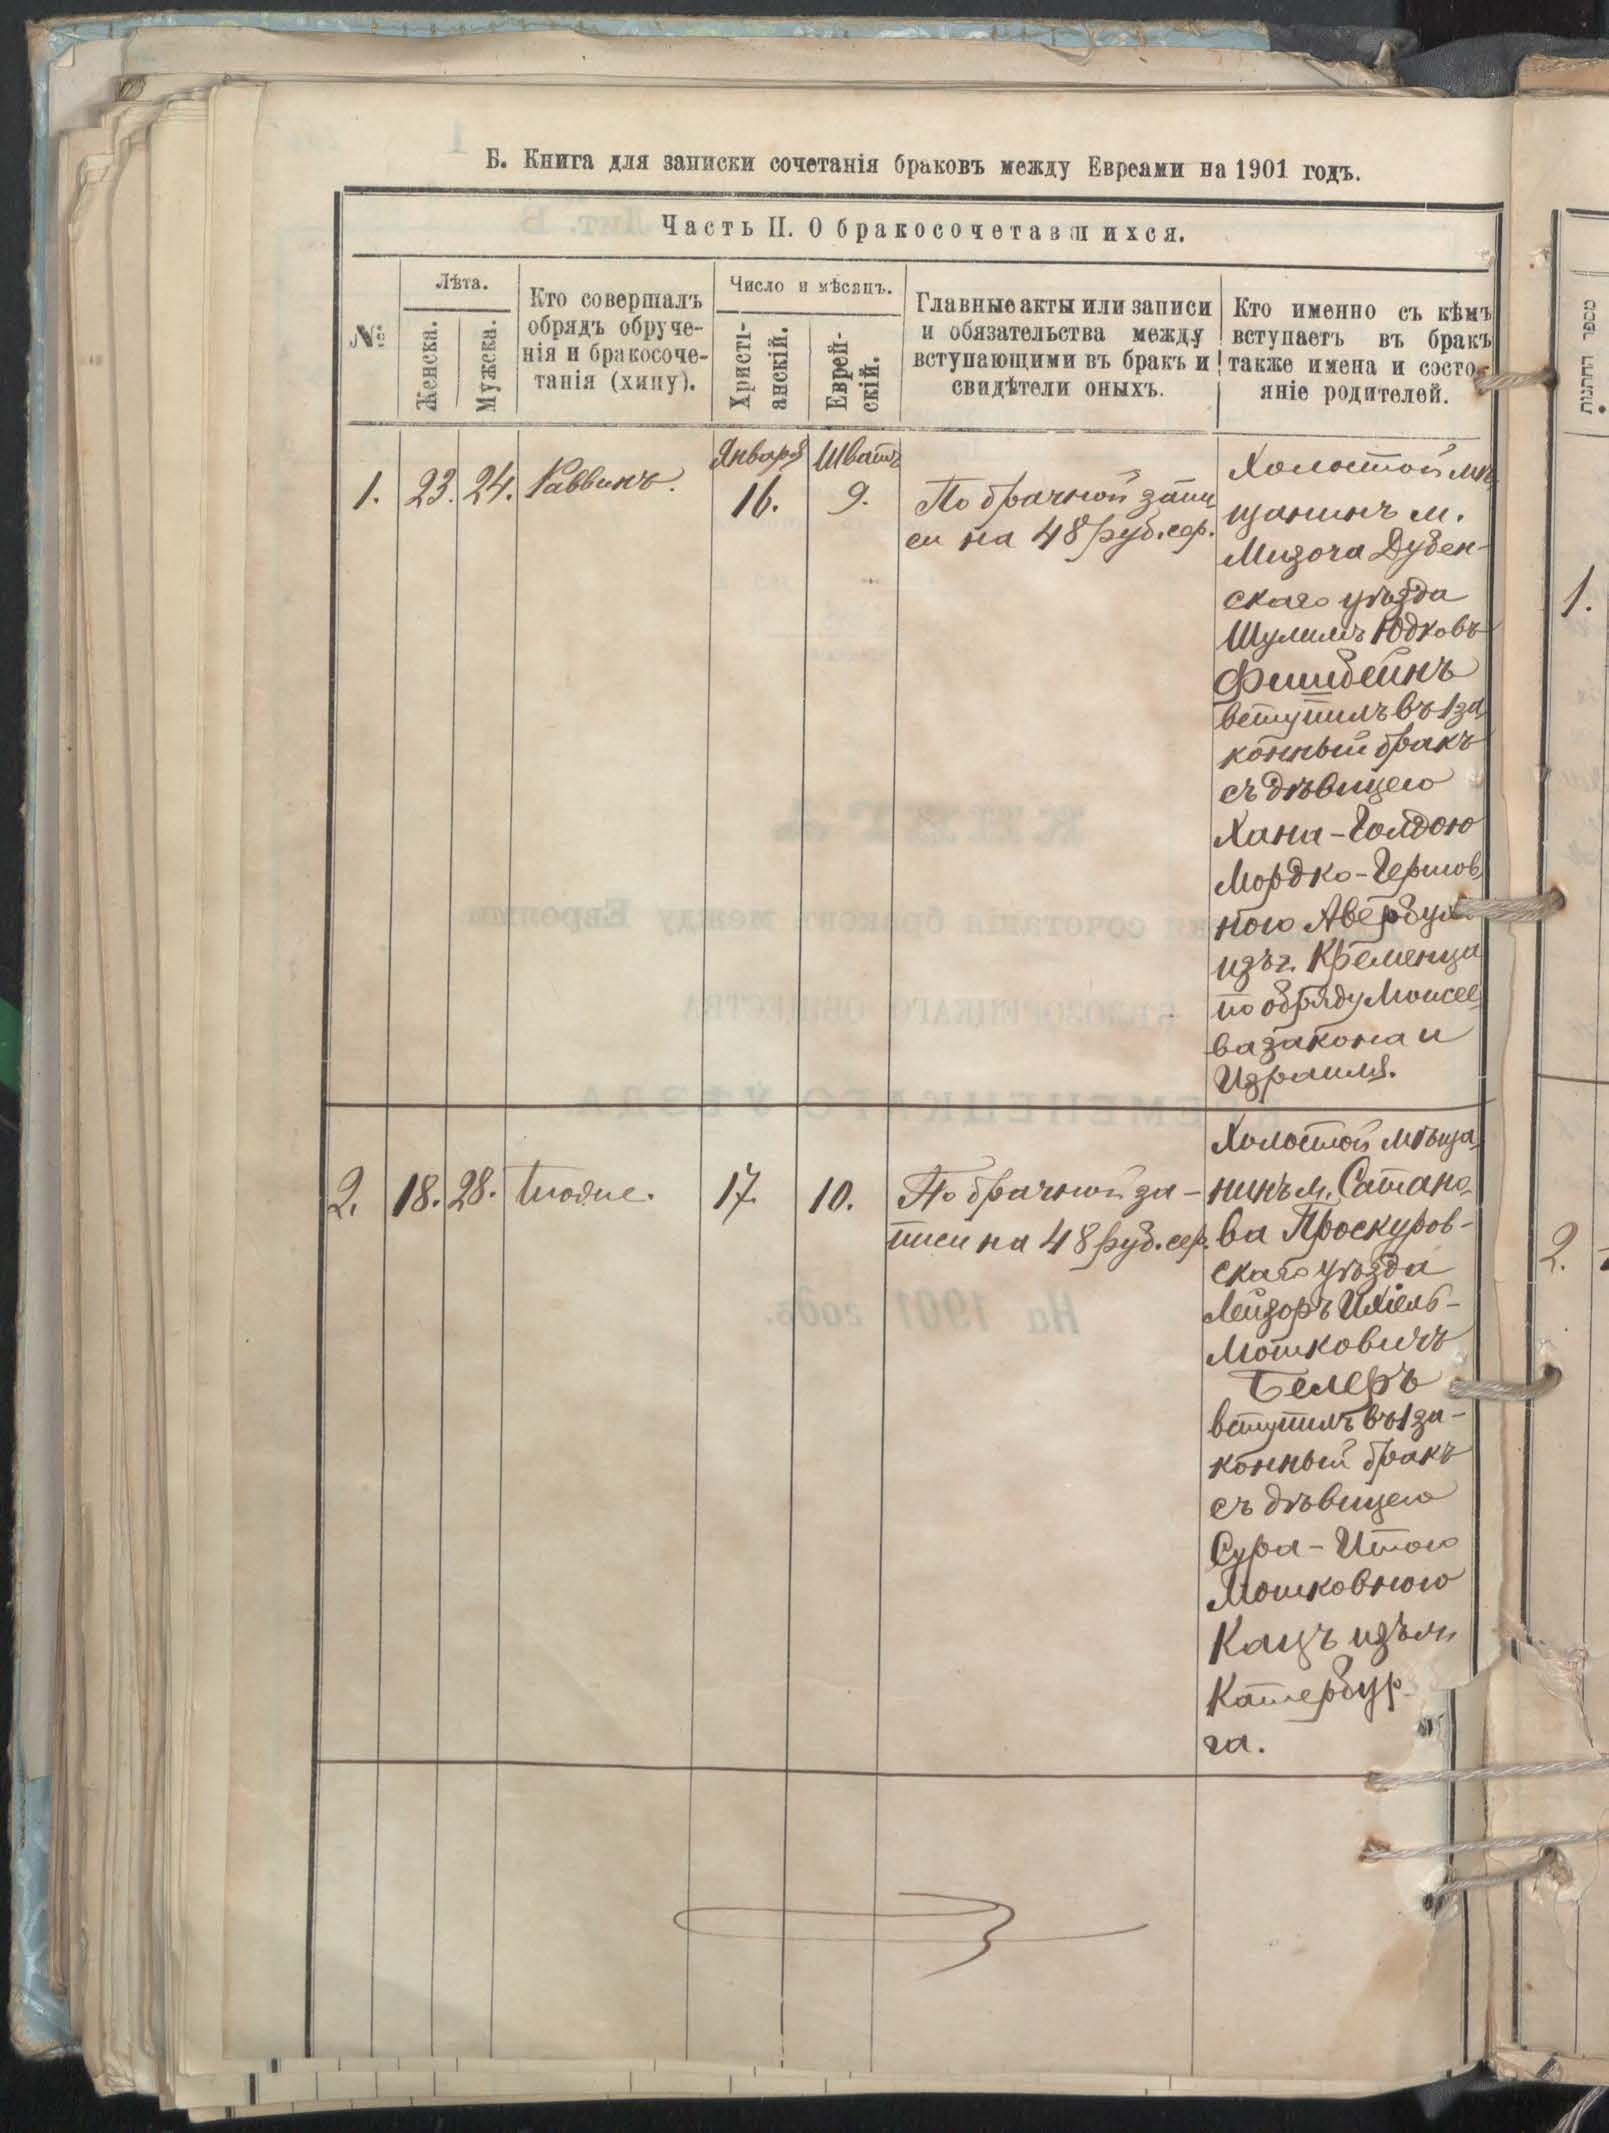 Б. Книга для записки сочетанія браковъ между Евреами на 1901 годъ.
Часть II. О бракосочетавшихся.
№
Лѣта.
Женска.
Мужска.
Кто совершалъ
обрядъ обруче-
нія и бракосоче-
танія (хипу).
Число и мѣсяцъ.
Христі-
анскій.
Еврей-
скій.
Главные акты или записи
и обязательства между
вступающими въ бракъ и
свидѣтели оныхъ.
Кто именно съ кѣмъ
вступаетъ въ бракъ
также имена и состо-
яніе родителей.
1. 23. 24. Раввинъ.
Января 16.
Шватъ 9.
По брачной запи
си на 48 руб. сер.
Холостой мѣ
щанинъ м.
Мизоча Дубен-
скаго уѣзда
Шулимъ Юдковъ
Фишбейнъ
вступилъ въ 1 за
конный бракъ
съ дѣвицею
Хана-Голдою
Мордко-Гершов
ною Авербухъ
изъ г. Кременца
по обряду Моисее
ва закона и
Израиля.
2. 18. 28. 17. 10.
По брачной за-
писи на 48 руб. сер.
Холостой мѣща
нинъ м. Сатано
ва Проскуров-
скаго уѣзда
Лейзоръ Ихіель-
Мошковичъ
Белеръ
вступилъ въ 1 за-
конный бракъ
съ дѣвицею
Сура-Итою
Мошковною
Кацъ изъ м.
Катербур-
га.
מספר החתנות
1.
2.